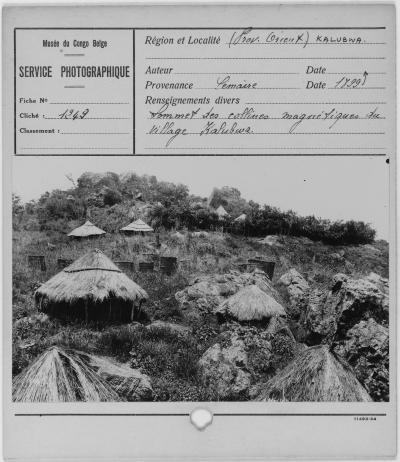 Musée du Congo Belge
SERVICE PHOTOGRAPHIQUE
Fiche No
Cliché : 1243
Classement :
Région et Localité (Prov. Orient) KALUBWA.
Auteur Date
Provenance Lemaire Date 1899
Renseignements divers
Sommet des collines magnétiques du
village Kalubwa.